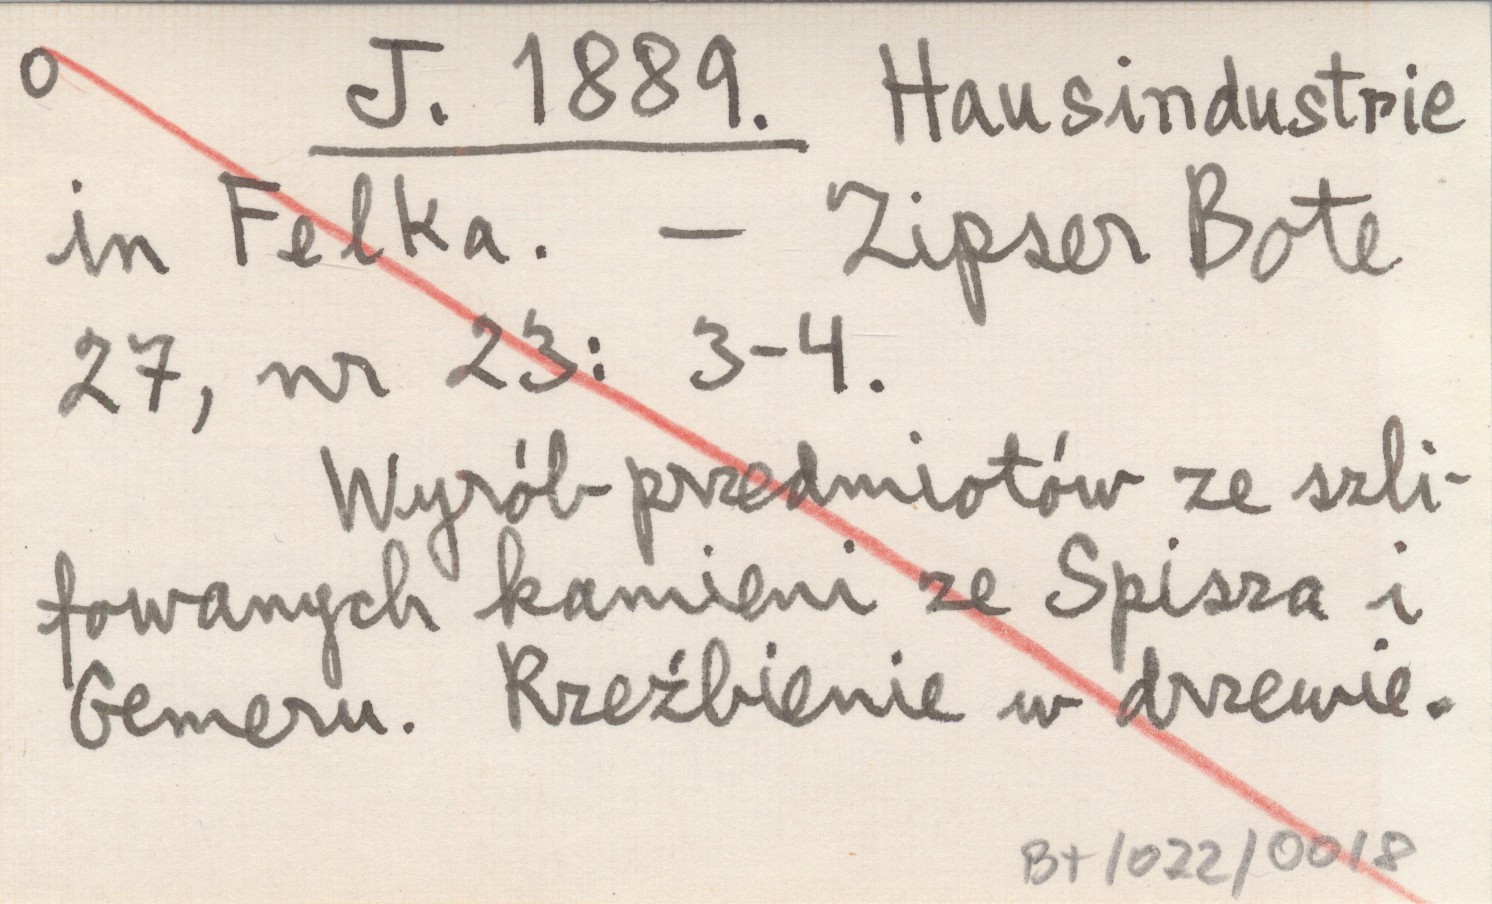 o J. 1889. Hausindustrie
in Felka. – Zipser Bote
27, nr 23: 3-4.
Wyrób przedmiotów ze szli-
fowanych kamieni ze Spisza i
Gemeru. Rzeźbienie w drzewie.
B+/022/0018